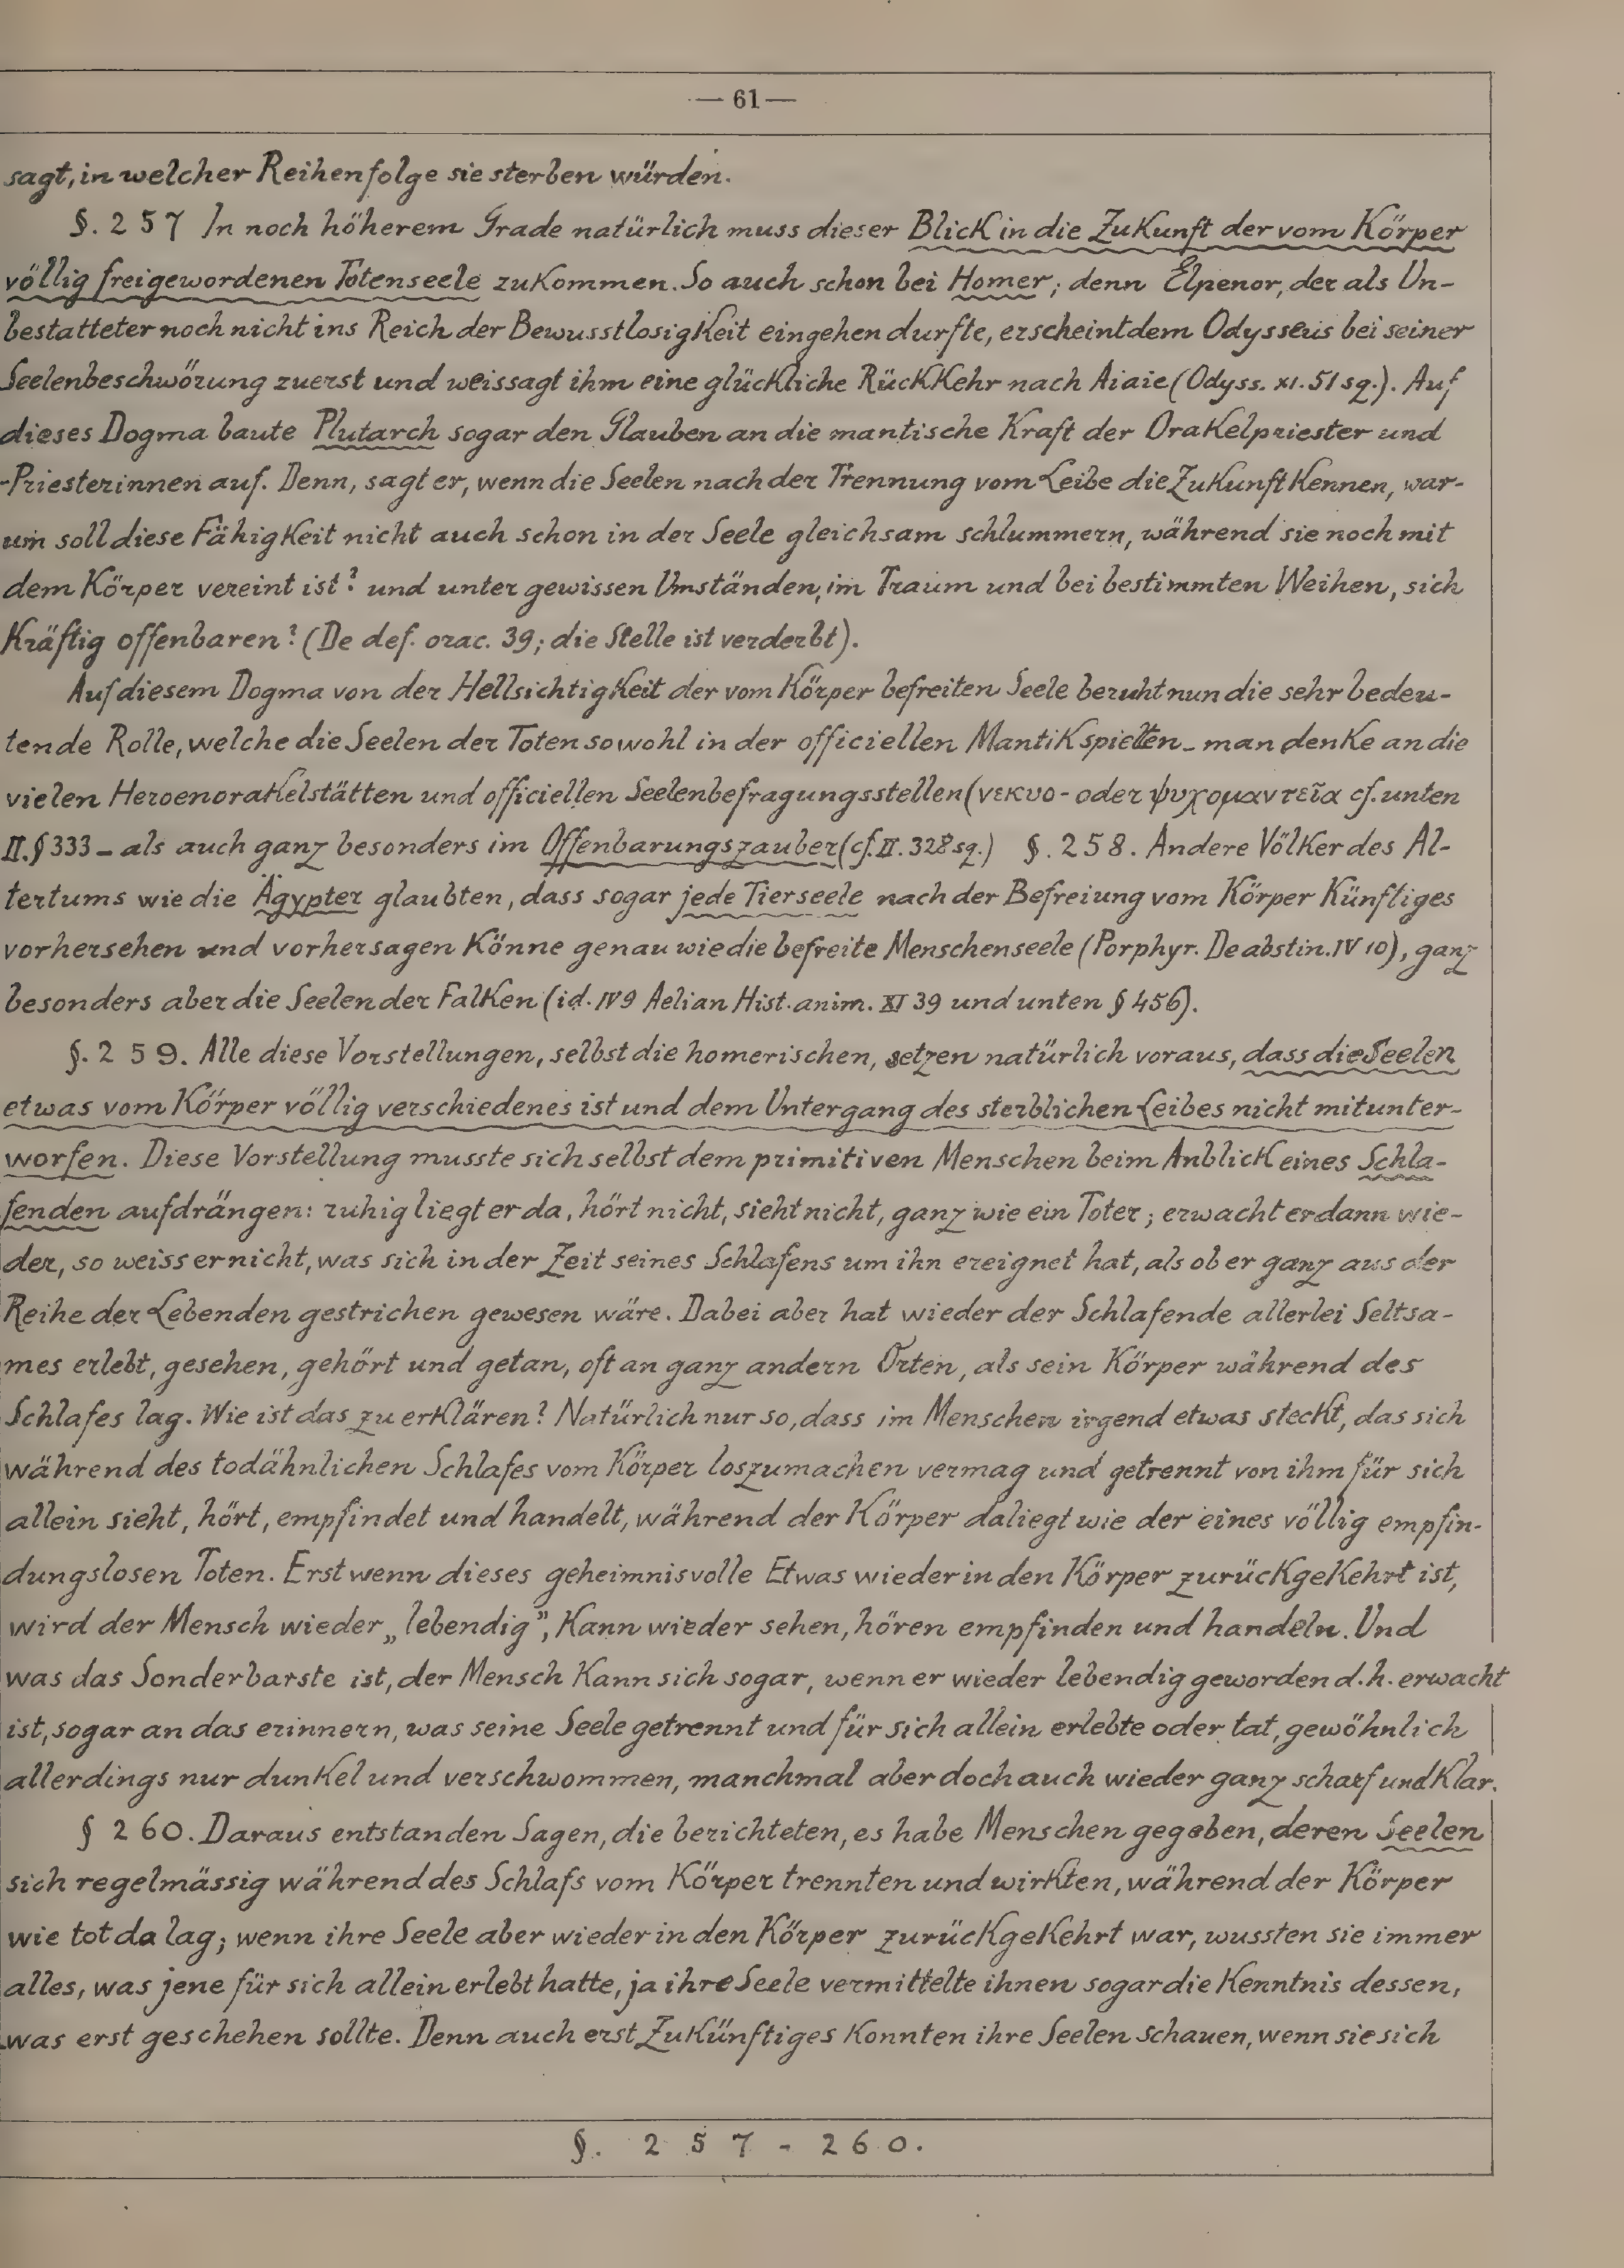 — 61 —
sagt, in welcher Reihenfolge sie sterben würden.
§. 257 In noch höherem Grade natürlich muss dieser Blick in die Zukunft der vom Körper
völlig freigewordenen Totenseele zukommen. So auch schon bei Homer; denn Elpenor, der als Un-
bestatteter noch nicht ins Reich der Bewusstlosigkeit eingehen durfte, erscheint dem Odysseus bei seiner
Seelenbeschwörung zuerst und weissagt ihm eine glückliche Rückkehr nach Aiaie (Odyss. XI. 51 sq.). Auf
dieses Dogma baute Plutarch sogar den Glauben an die mantische Kraft der Orakelpriester und
-Priesterinnen auf. Denn, sagt er, wenn die Seelen nach der Trennung vom Leibe die Zukunft kennen, war-
um soll diese Fähigkeit nicht auch schon in der Seele gleichsam schlummern, während sie noch mit
dem Körper vereint ist? und unter gewissen Umständen, im Traum und bei bestimmten Weihen, sich
kräftig offenbaren? (De def. orac. 39; die Stelle ist verderbt).
Auf diesem Dogma von der Hellsichtigkeit der vom Körper befreiten Seele beruht nun die sehr bedeu-
tende Rolle, welche die Seelen der Toten sowohl in der officiellen Mantik spielten – man denke an die
vielen Heroenorakelstätten und officiellen Seelenbefragungsstellen (νεκυο- oder ψυχομαντεῖα cf. unten
II. § 333 – als auch ganz besonders im Offenbarungszauber (cf. II. 328 sq.) §. 258. Andere Völker des Al-
tertums wie die Ägypter glaubten, dass sogar jede Tierseele nach der Befreiung vom Körper Künftiges
vorhersehen und vorhersagen könne genau wie die befreite Menschenseele (Porphyr. De abstin. IV 10), ganz
besonders aber die Seelen der Falken (id. IV 9 Aelian Hist. anim. XI 39 und unten § 456).
§. 259. Alle diese Vorstellungen, selbst die homerischen, setzen natürlich voraus, dass die Seelen
etwas vom Körper völlig verschiedenes ist und dem Untergang des sterblichen Leibes nicht mitunter-
worfen. Diese Vorstellung musste sich selbst dem primitiven Menschen beim Anblick eines Schla-
fenden aufdrängen: ruhig liegt er da, hört nicht, sieht nicht, ganz wie ein Toter; erwacht er dann wie-
der, so weiss er nicht, was sich in der Zeit seines Schlafens um ihn ereignet hat, als ob er ganz aus der
Reihe der Lebenden gestrichen gewesen wäre. Dabei aber hat wieder der Schlafende allerlei Seltsa-
mes erlebt, gesehen, gehört und getan, oft an ganz andern Orten, als sein Körper während des
Schlafes lag. Wie ist das zu erklären? Natürlich nur so, dass im Menschen irgend etwas steckt, das sich
während des todähnlichen Schlafes vom Körper loszumachen vermag und getrennt von ihm für sich
allein sieht, hört, empfindet und handelt, während der Körper daliegt wie der eines völlig empfin-
dungslosen Toten. Erst wenn dieses geheimnisvolle Etwas wieder in den Körper zurückgekehrt ist,
wird der Mensch wieder „lebendig”, kann wieder sehen, hören empfinden und handeln. Und
was das Sonderbarste ist, der Mensch kann sich sogar, wenn er wieder lebendig geworden d.h. erwacht
ist, sogar an das erinnern, was seine Seele getrennt und für sich allein erlebte oder tat, gewöhnlich
allerdings nur dunkel und verschwommen, manchmal aber doch auch wieder ganz scharf und klar.
§ 260. Daraus entstanden Sagen, die berichteten, es habe Menschen gegeben, deren Seelen
sich regelmässig während des Schlafs vom Körper trennten und wirkten, während der Körper
wie tot da lag; wenn ihre Seele aber wieder in den Körper zurückgekehrt war, wussten sie immer
alles, was jene für sich allein erlebt hatte, ja ihre Seele vermittelte ihnen sogar die Kenntnis dessen,
was erst geschehen sollte. Denn auch erst Zukünftiges konnten ihre Seelen schauen, wenn sie sich
§. 257 - 260.